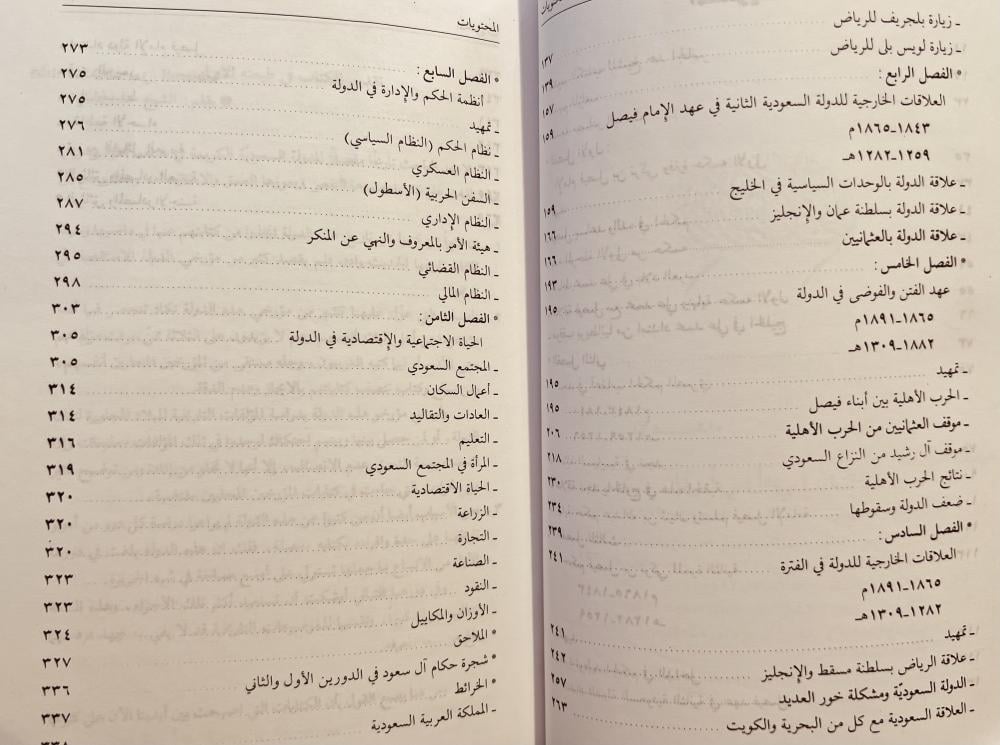 ـ زيارة بلجريف للرياض ١٣٧
ـ زيارة لويس بلي للرياض ١٣٩
* الفصل الرابع: ١٥٧
العلاقات الخارجية للدولة السعودية الثانية في عهد الإمام فيصل ١٥٩
١٨٤٣ـ١٨٦٥م
١٢٥٩ـ١٢٨٢هـ
ـ علاقة الدولة بالوحدات السياسية في الخليج ١٥٩
ـ علاقة الدولة بسلطنة عمان والإنجليز ١٦٦
ـ علاقة الدولة بالعثمانيين ١٦٦
* الفصل الخامس: ١٩٣
عهد الفتن والفوضى في الدولة ١٩٥
١٨٦٥ـ١٨٩١م
١٨٨٢ـ١٣٠٩هـ
ـ تمهيد ١٩٥
ـ الحرب الأهلية بين أبناء فيصل ١٩٥
ـ موقف العثمانيين من الحرب الأهلية ٢٠٦
ـ موقف آل رشيد من النزاع السعودي ٢١٨
ـ نتائج الحرب الأهلية ٢٣٠
ـ ضعف الدولة وسقوطها ٢٣٤
* الفصل السادس: ٢٣٩
العلاقات الخارجية للدولة في الفترة ٢٤١
١٨٦٥ـ١٨٩١م
١٢٨٢ـ١٣٠٩هـ
ـ تمهيد ٢٤١
ـ علاقة الرياض بسلطنة مسقط والإنجليز ٢٤٢
ـ الدولة السعوديّة ومشكلة خور العديد ٢٥٧
ـ العلاقة السعودية مع كل من البحرية والكويت ٢٦٣
المحتويات
* الفصل السابع: ٢٧٣
أنظمة الحكم والإدارة في الدولة ٢٧٥
ـ تمهيد ٢٧٥
ـ نظام الحكم (النظام السياسي) ٢٧٦
ـ النظام العسكري ٢٨١
ـ السفن الحربية (الأسطول) ٢٨٥
ـ النظام الإداري ٢٨٧
ـ هيئة الأمر بالمعروف والنهي عن المنكر ٢٩٤
ـ النظام القضائي ٢٩٥
ـ النظام المالي ٢٩٨
* الفصل الثامن: ٣٠٣
الحياة الاجتماعية والإقتصادية في الدولة ٣٠٥
ـ المجتمع السعودي ٣٠٥
ـ أعمال السكان ٣١٤
ـ العادات والتقاليد ٣١٤
ـ التعليم ٣١٦
ـ المرأة في المجتمع السعودي ٣١٩
ـ الحياة الاقتصادية ٣٢٠
ـ الزراعة ٣٢٠
ـ التجارة ٣٢٠
ـ الصناعة ٣٢٣
ـ النقود ٣٢٣
ـ الأوزان والمكاييل ٣٢٤
* الملاحق ٣٢٧
* شجرة حكام آل سعود في الدورين الأول والثاني ٣٣٦
* الخرائط ٣٣٧
ـ المملكة العربية السعودية ٣٣٨